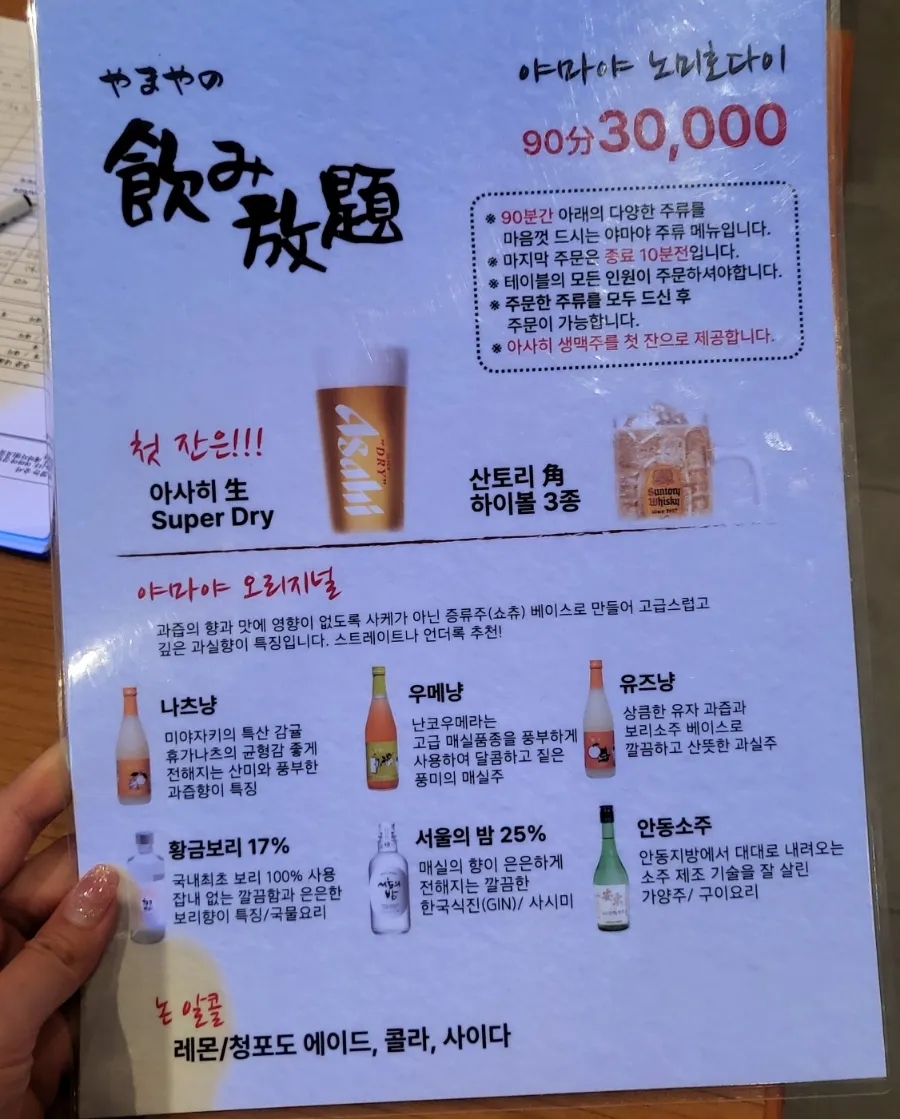 やまやの
飲み
放題
야마야 노미호다이
90分30,000
※ 90분간 아래의 다양한 주류를
마음껏 드시는 야마야 주류 메뉴입니다.
※ 마지막 주문은 종료 10분전입니다.
※ 테이블의 모든 인원이 주문하셔야합니다.
※ 주문한 주류를 모두 드신 후
주문이 가능합니다.
※ 아사히 생맥주를 첫 잔으로 제공합니다.
첫 잔은!!!
아사히 生
Super Dry
Asahi
"DRY"
산토리 角
하이볼 3종
Suntory
Whisky
야마야 오리지널
과즙의 향과 맛에 영향이 없도록 사케가 아닌 증류주(쇼츄) 베이스로 만들어 고급스럽고
깊은 과실향이 특징입니다. 스트레이트나 언더록 추천!
나츠냥
미야자키의 특산 감귤
휴가나츠의 균형감 좋게
전해지는 산미와 풍부한
과즙향이 특징
우메냥
난코우메라는
고급 매실품종을 풍부하게
사용하여 달콤하고 짙은
풍미의 매실주
유즈냥
상큼한 유자 과즙과
보리소주 베이스로
깔끔하고 산뜻한 과실주
황금보리 17%
국내최초 보리 100% 사용
잡내 없는 깔끔함과 은은한
보리향이 특징/국물요리
서울의 밤 25%
매실의 향이 은은하게
전해지는 깔끔한
한국식진(GIN)/ 사시미
서울의
밤
안동소주
안동지방에서 대대로 내려오는
소주 제조 기술을 잘 살린
가양주/ 구이요리
논 알콜
레몬/청포도 에이드, 콜라, 사이다